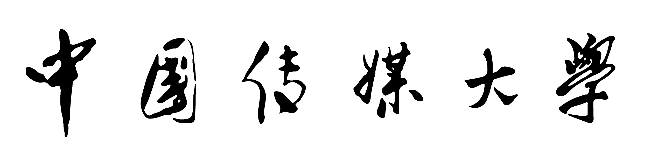 中國传媒大學